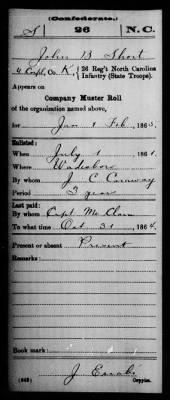 (Confederate.)
S 26 N.C.
John B Short
4 Corpl, Co. K, 26 Reg't North Carolina
Infantry (State Troops).
Appears on
Company Muster Roll
of the organization named above,
for Jan & Feb, 1865.
Enlisted:
When July 1, 1861.
Where Wadesboro
By whom J C
Period 3 years
Last paid:
By whom Capt
To what time Oct 31, 1864.
Present or absent Present
Remarks:
Book mark:
(642) J Copyist.